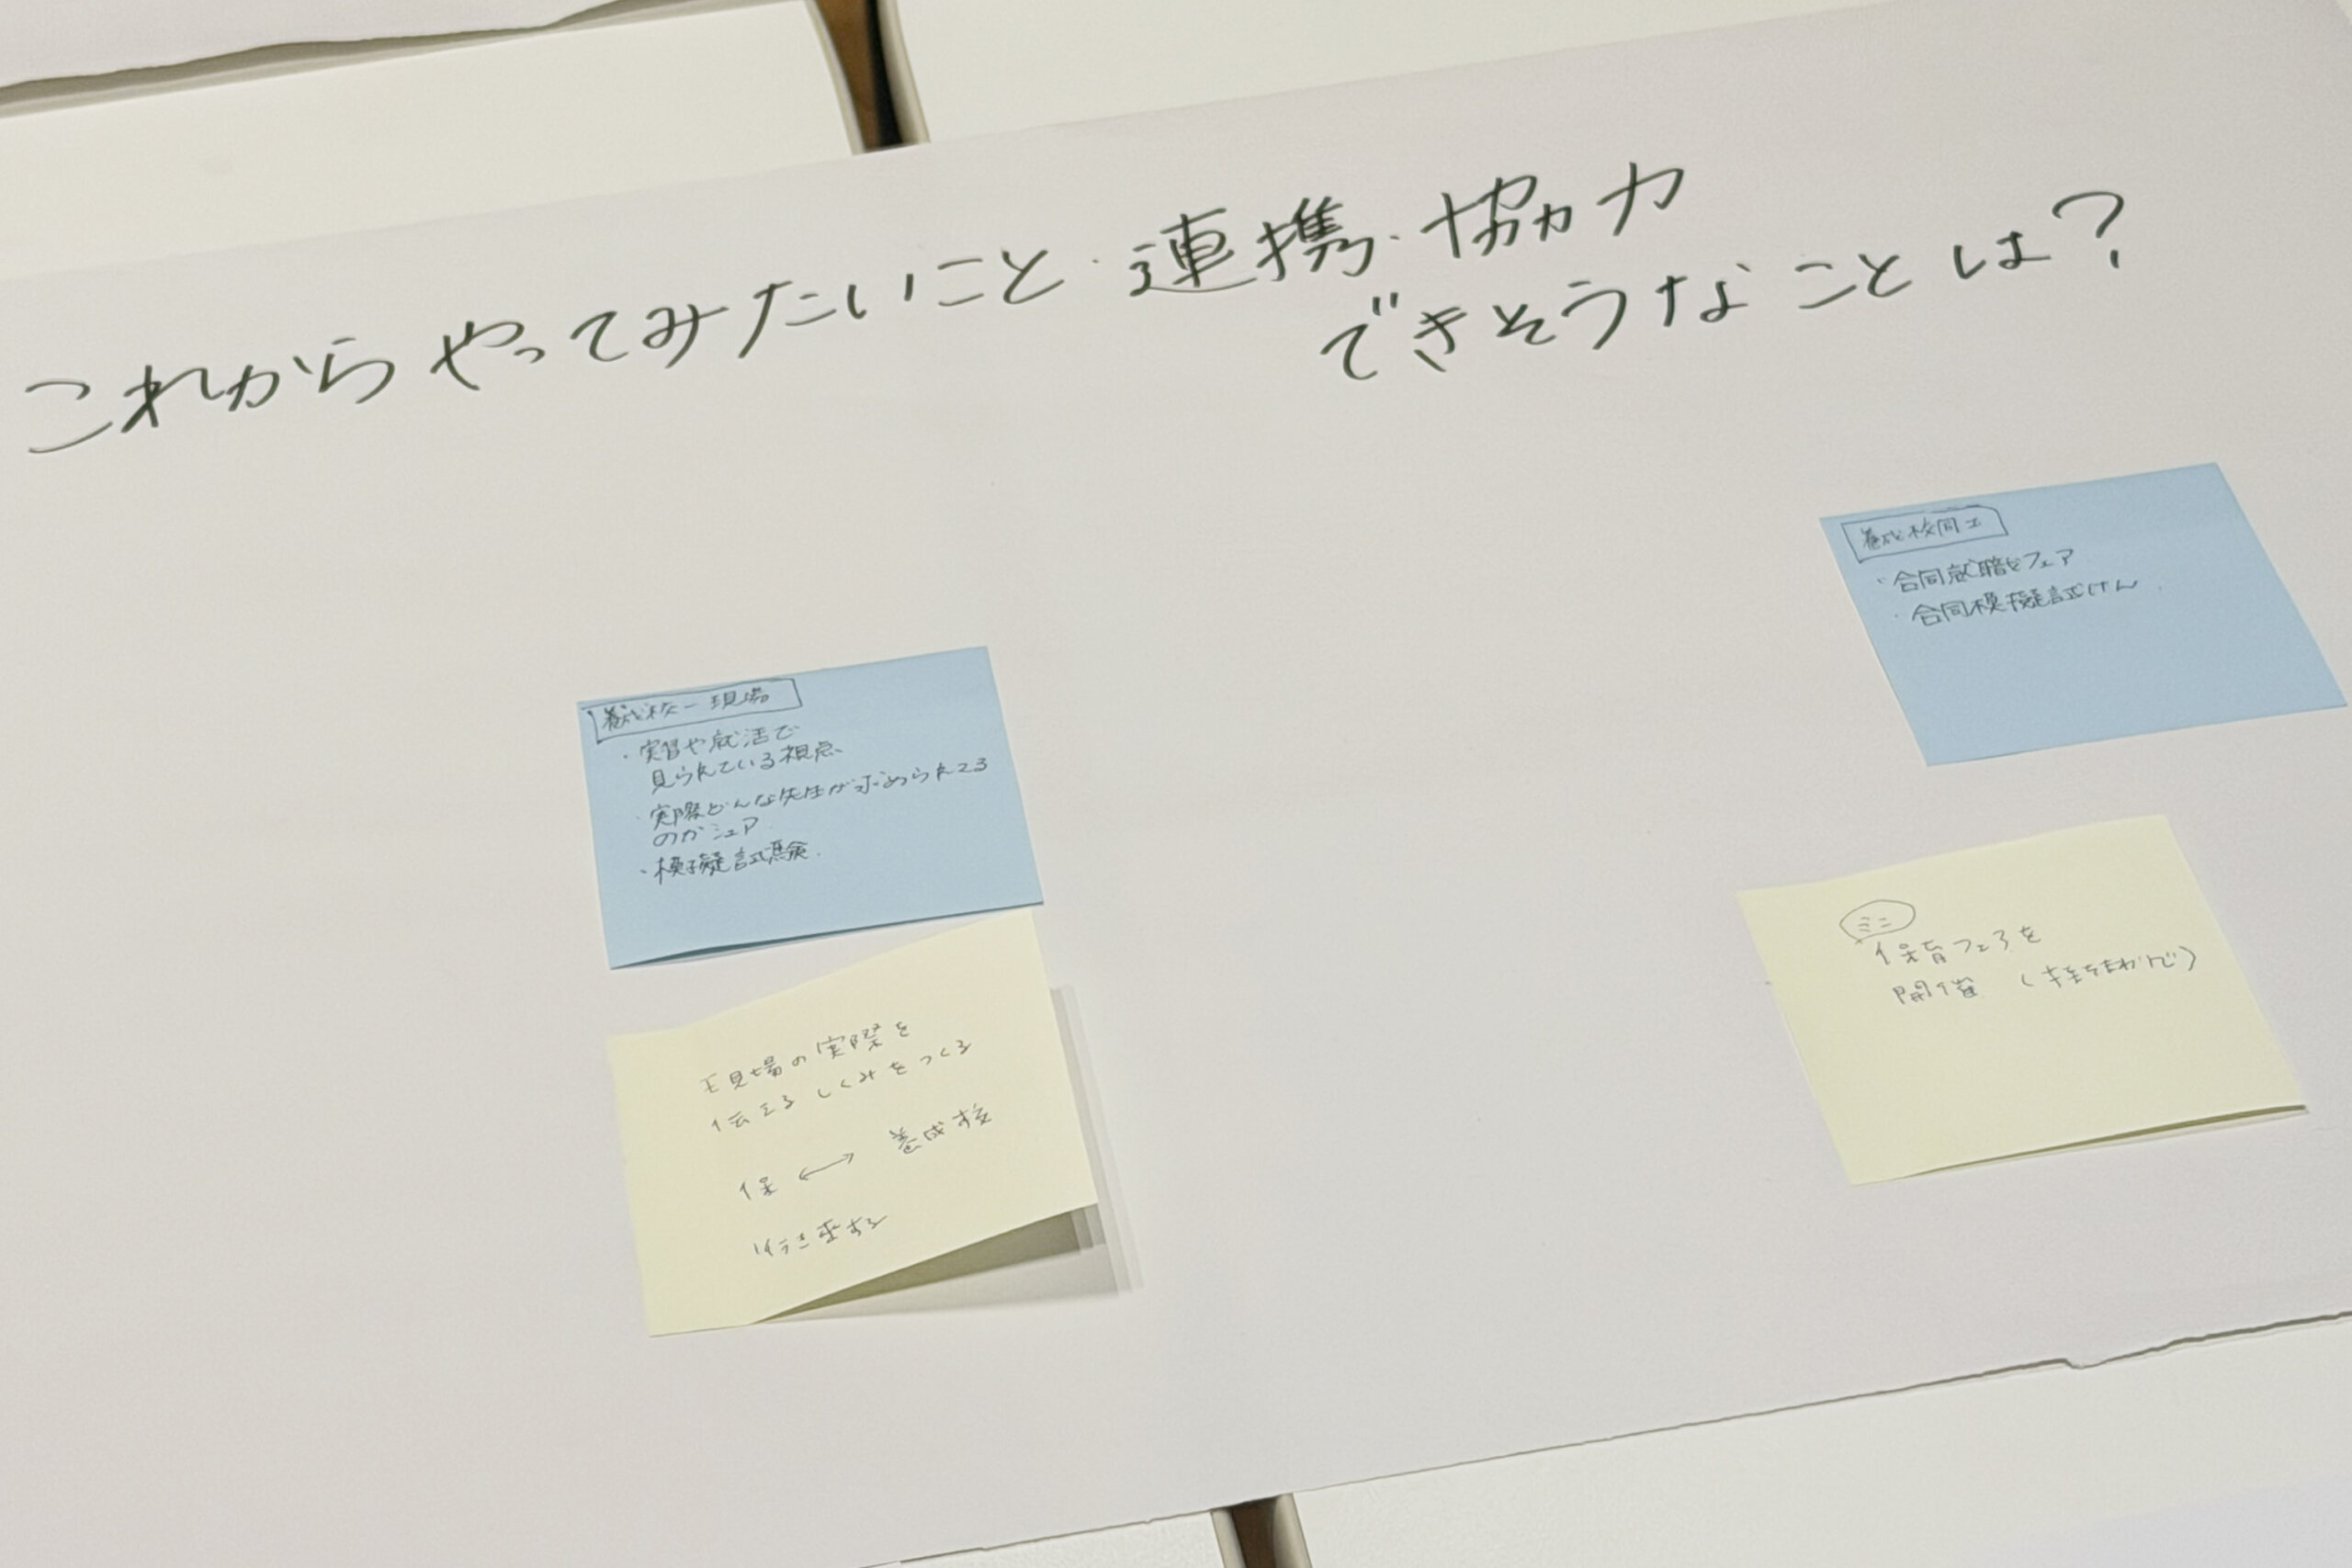 これからやってみたいこと・連携・協力
できそうなことは?
養成校ー現場
・実習や就活で
見られている視点、
・実際どんな先生が求められてる
のかシェア.
・模擬試験.
現場の実際を
伝える しくみをつくる
保 ⟷ 養成校
行き来する
養成校同士
・合同就職フェア
・合同模擬試けん
ミニ
保育フェアを
開催